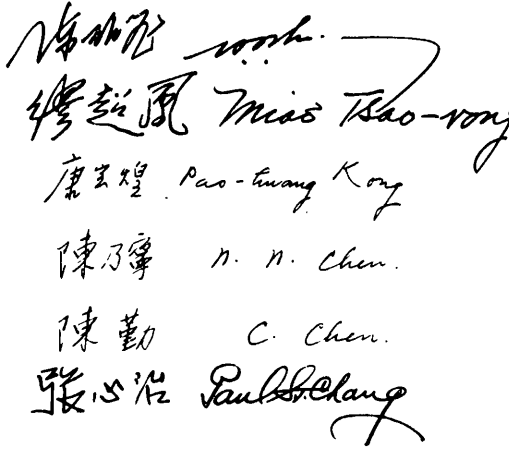 繆超鳳 Miao Tsao-vong
康宝煌 Pao-hwang Kong
陳乃寧 n. n. Chen.
陳勤 C. Chen.
張心治 Paul S. Chang